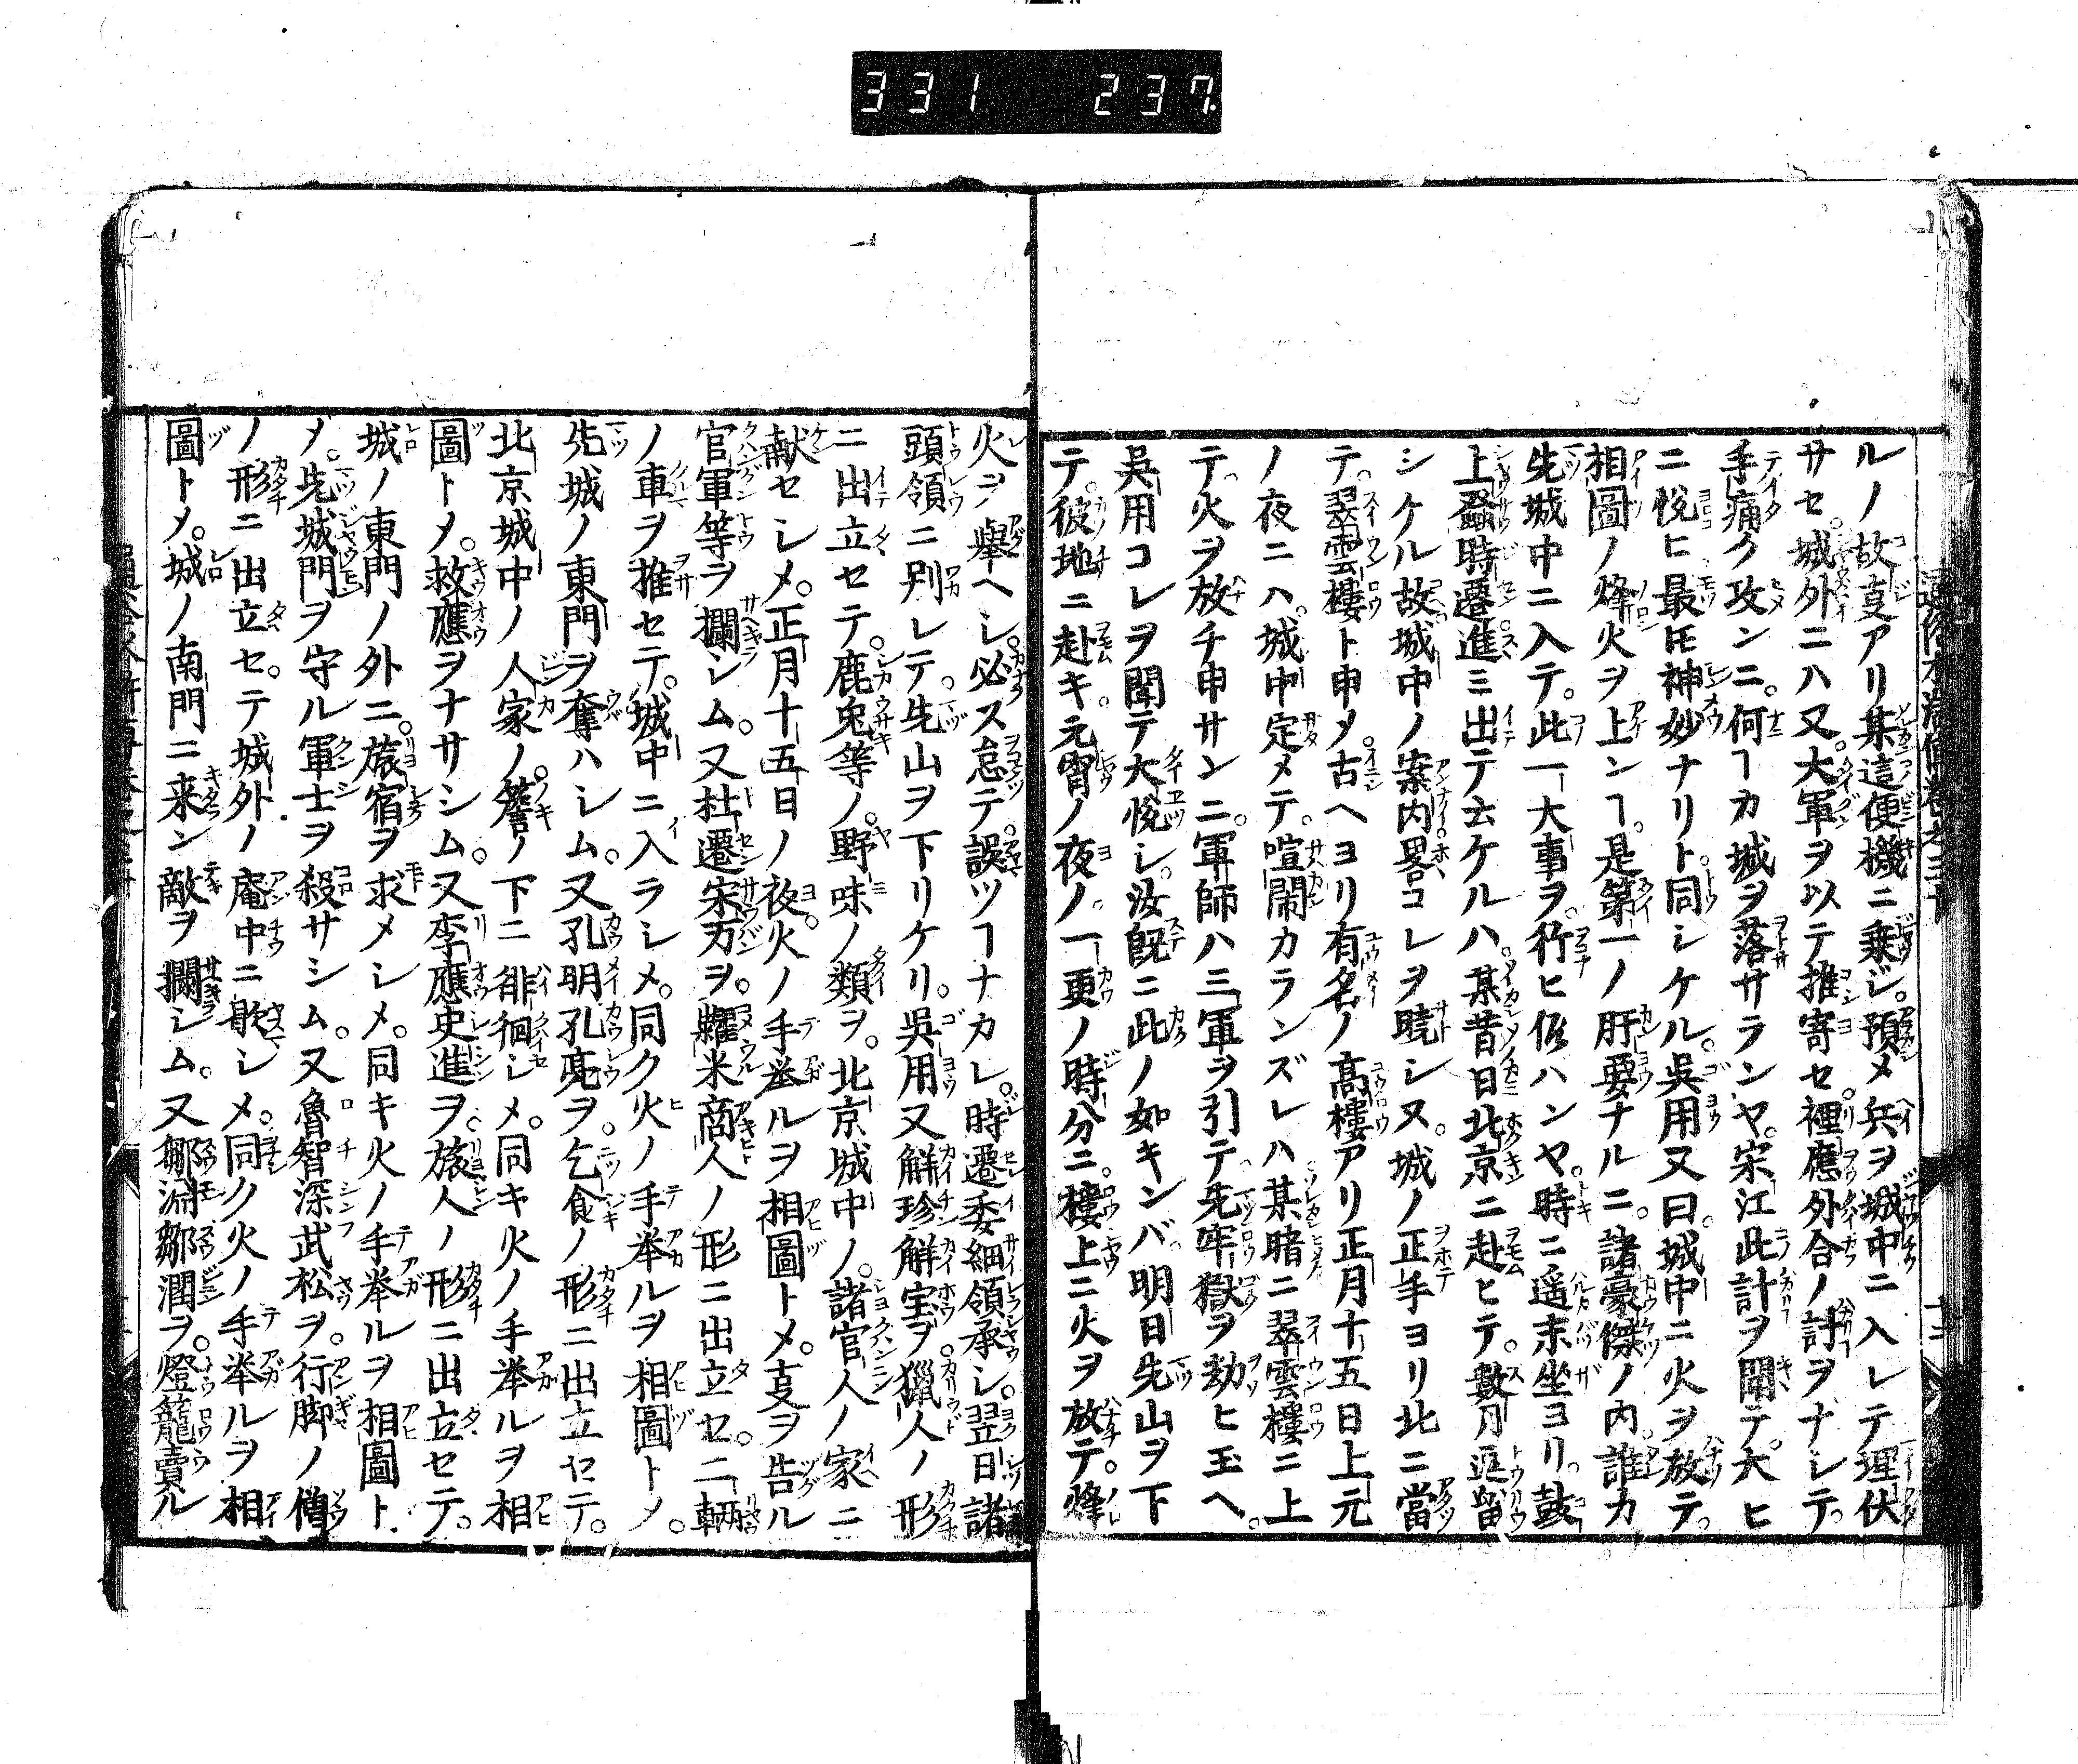 331 237
ルノ故叓アリ某這便機ニ乗ジ。預メ兵ヲ城中ニ入レテ埋伏
サセ。城外ニハ又。大軍ヲ以テ推寄セ。裡應外合ノ計ヲナシテ。
手痛ク攻ンニ。何ヿカ城ヲ落サランヤ。宋江此計ヲ聞テ。大ヒ
ニ悦ヒ最モ神妙ナリト。同シケル。呉用又曰。城中ニ火ヲ放テ。
相圖ノ烽火ヲ上ンヿ。是第一ノ肝要ナルニ。諸豪傑ノ内誰カ
先城中ニ入テ。此一大事ヲ。行ヒ候ハンヤ。時ニ遥末坐ヨリ。鼓
上蚤時遷進ミ出テ云ケルハ。某昔日北京ニ赴ヒテ。數月逗留
シケル故城中ノ案内畧コレヲ暁シヌ。城ノ正手ヨリ北ニ當
テ。翠雲樓ト申メ。古ヘヨリ有名ノ高樓アリ正月十五日上元
ノ夜ニハ。城中定メテ。喧閙カランズレハ某暗ニ翠雲樓ニ上
テ。火ヲ放チ申サンニ。軍師ハ三軍ヲ引テ。先牢獄ヲ劫ヒ玉ヘ。
呉用コレヲ聞テ大悦シ。汝既ニ此ノ如キンバ。明日先山ヲ下
テ。彼地ニ赴キ。元宵ノ夜ノ。一更ノ時分ニ。樓上ニ火ヲ放テ。烽
火ヲ舉ヘシ。必ス忘テ。誤ツヿナカレ。時遷委細領承シ。翌日諸
頭領ニ別レテ。先山ヲ下リケリ。呉用又解珍解宝ヲ。獵人ノ形
ニ出立セテ。鹿兎等ノ。野味ノ類ヲ。北京城中ノ。諸官人ノ家ニ
献セシメ。正月十五日ノ夜。火ノ手举ルヲ相圖トメ。叓ヲ告ル
官軍等ヲ攔シム。又杜遷宋万ヲ。糶米商人ノ形ニ出立セ。二輛
ノ車ヲ推セテ。城中ニ入ラシメ。同ク火ノ手举ルヲ相圖トメ。
先城ノ東門ヲ奪ハシム。又孔明孔亮ヲ。乞食ノ形ニ出立セテ。
北京城中ノ人家ノ。簷ノ下ニ徘徊シメ。同キ火ノ手举ルヲ相
圖トメ。救應ヲナサシム。又李應史進ヲ。旅人ノ形ニ出立セテ。
城ノ東門ノ外ニ。旅宿ヲ求メシメ。同キ火ノ手举ルヲ相圖ト
メ。先城門ヲ守ル軍士ヲ殺サシム。又魯智深武松ヲ。行脚ノ僧
ノ形ニ出立セ。テ城外ノ庵中ニ歇シメ。同ク火ノ手举ルヲ相
圖トメ。城ノ南門ニ来ン敵ヲ攔シム。又鄒淵鄒潤ヲ。燈籠賣ル